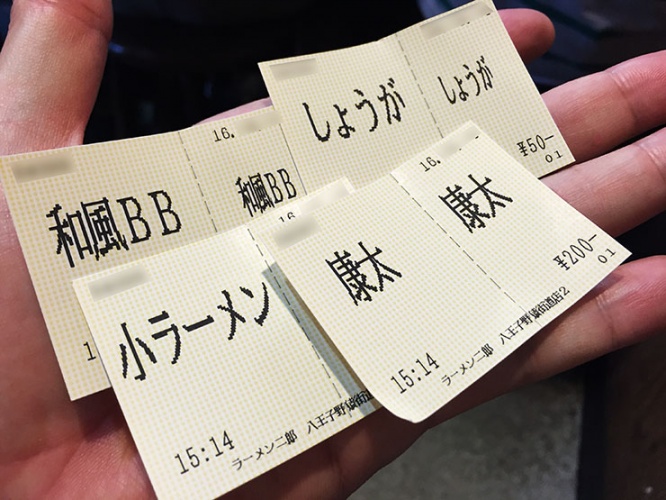 しょうが
しょうが
¥50-
01
16.
和風BB
和風BB
16.
康太
康太
¥200-
01
15:14
ラーメン二郎 八王子野猿街道店2
16
小ラーメン
15:14
ラーメン二郎 八王子野猿街道
1